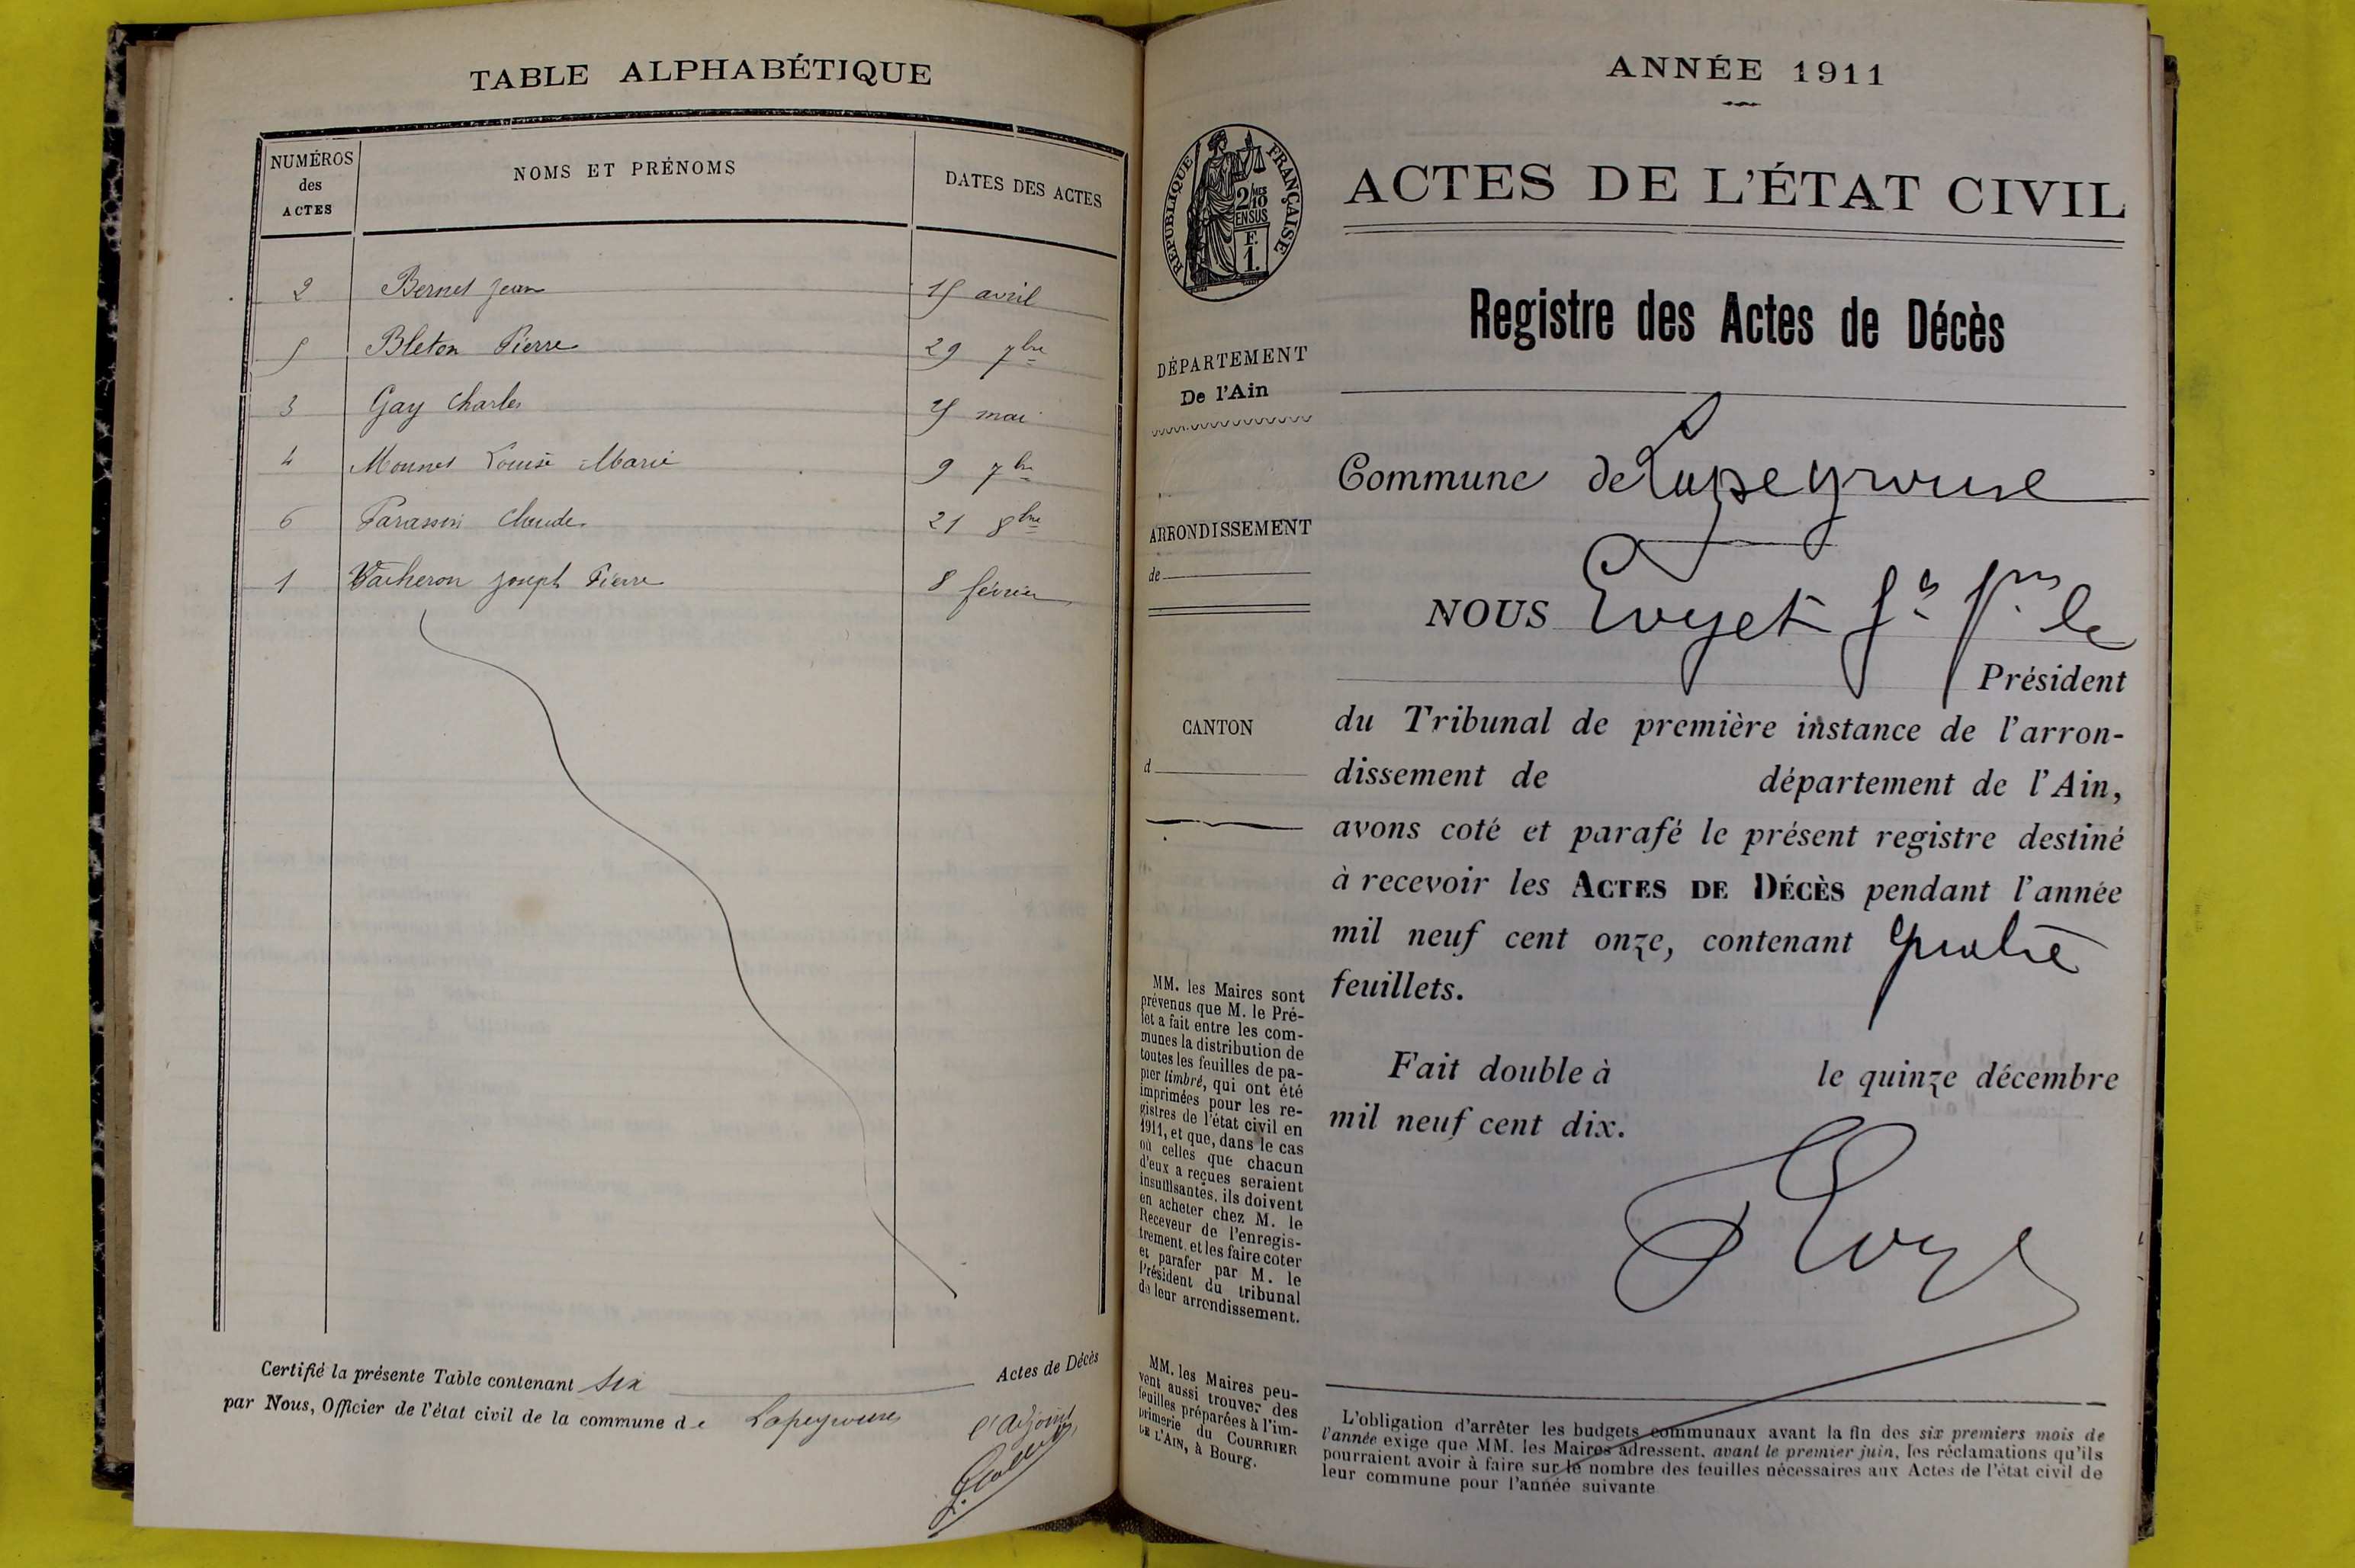 TABLE ALPHABÉTIQUE
NUMÉROS des ACTES
NOMS ET PRÉNOMS
DATES DES ACTES
2 Bernet Jean 15 avril
5 Bleton Pierre 29 7bre
3 Gay Charles mai
4 Monnet Louise Marie 9 7bre
6 Claude 21 8bre
1 Vacheron Joseph Pierre 8 février
Certifié la présente Table contenant six Actes de Décès
par Nous, Officier de l'état civil de la commune de Lapeyrouse
l'adjoint
ANNÉE 1911
RÉPUBLIQUE FRANÇAISE
2/10 EN SUS
F. 1.
ACTES DE L'ÉTAT CIVIL
Registre des Actes de Décès
DÉPARTEMENT
De l'Ain
ARRONDISSEMENT
de
CANTON
d
MM. les Maires sont
prévenus que M. le Pré-
fet a fait entre les com-
munes la distribution de
toutes les feuilles de pa-
pier timbré, qui ont été
imprimées pour les re-
gistres de l'état civil en
1911, et que, dans le cas
où celles que chacun
d'eux a reçues seraient
insuffisantes, ils doivent
en acheter chez M. le
Receveur de l'enregis-
trement, et les faire coter
et parafer par M. le
Président du tribunal
de leur arrondissement.
MM. les Maires peu-
vent aussi trouver des
feuilles préparées à l'im-
primerie du COURRIER
DE L'AIN, à Bourg.
Commune de Lapeyrouse
NOUS le
Président
du Tribunal de première instance de l'arron-
dissement de département de l'Ain,
avons coté et parafé le présent registre destiné
à recevoir les ACTES DE DÉCÈS pendant l'année
mil neuf cent onze, contenant quatre
feuillets.
Fait double à le quinze décembre
mil neuf cent dix.
L'obligation d'arrêter les budgets communaux avant la fin des six premiers mois de
l'année exige que MM. les Maires adressent, avant le premier juin, les réclamations qu'ils
pourraient avoir à faire sur le nombre des feuilles nécessaires aux Actes de l'état civil de
leur commune pour l'année suivante